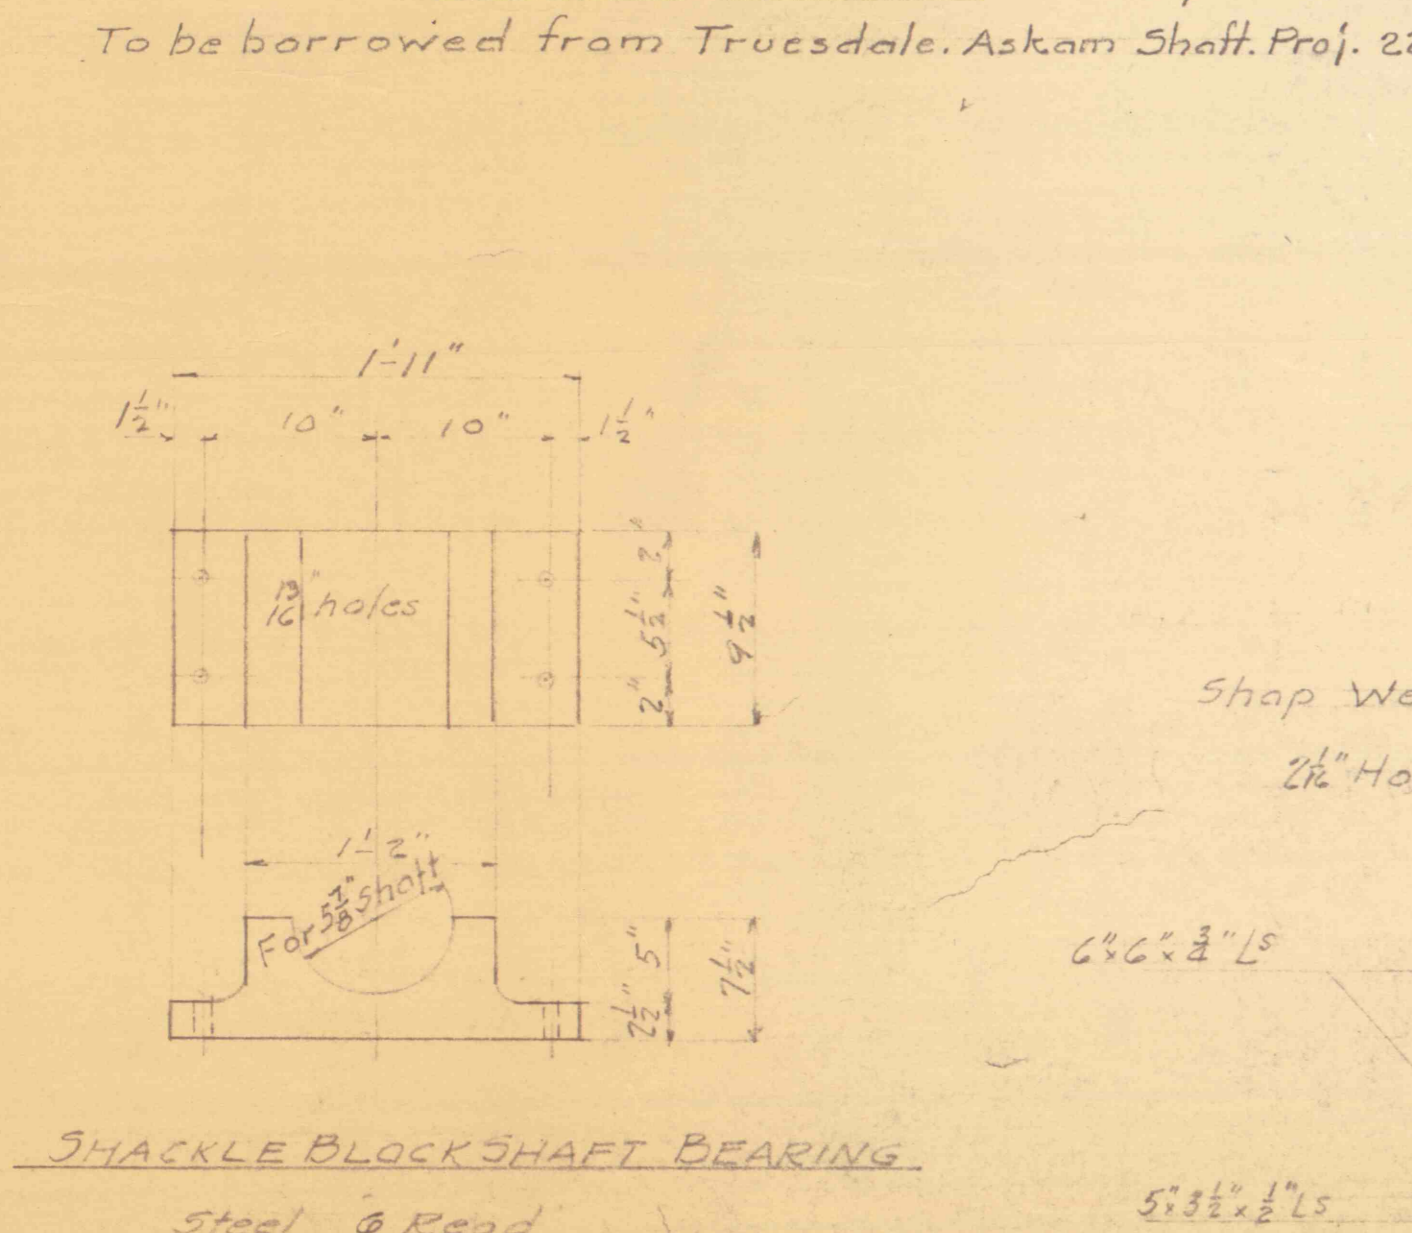 To be borrowed from Truesdale. Askam Shaft. Proj. 22
1'-11"
1 1/2" 10" 10" 1 1/2"
13/16" holes
2" 5 1/2" 2"
9 1/2"
Shop We
2 1/16" Ho
1'-2"
For 5 7/8" shaft
2 1/2" 5"
7 1/2"
6" x 6" x 3/4" Ls
SHACKLE BLOCK SHAFT BEARING
Steel 6 Reqd
5" x 3 1/2" x 1/2" Ls